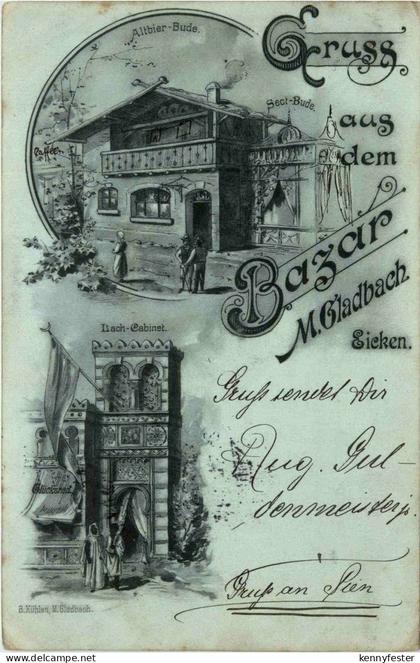 Altbier-Bude.
Gruss
Sect-Bude.
aus
dem
Caffee.
Bazar
M. Gladbach.
Eicken.
Lach-Cabinet.
Gruß sendet Dir
Aug. Gul-
denmeister
Glücksrad
Gruß an
B. Kühlen, M. Gladbach.
delcampe.net
kennyfester